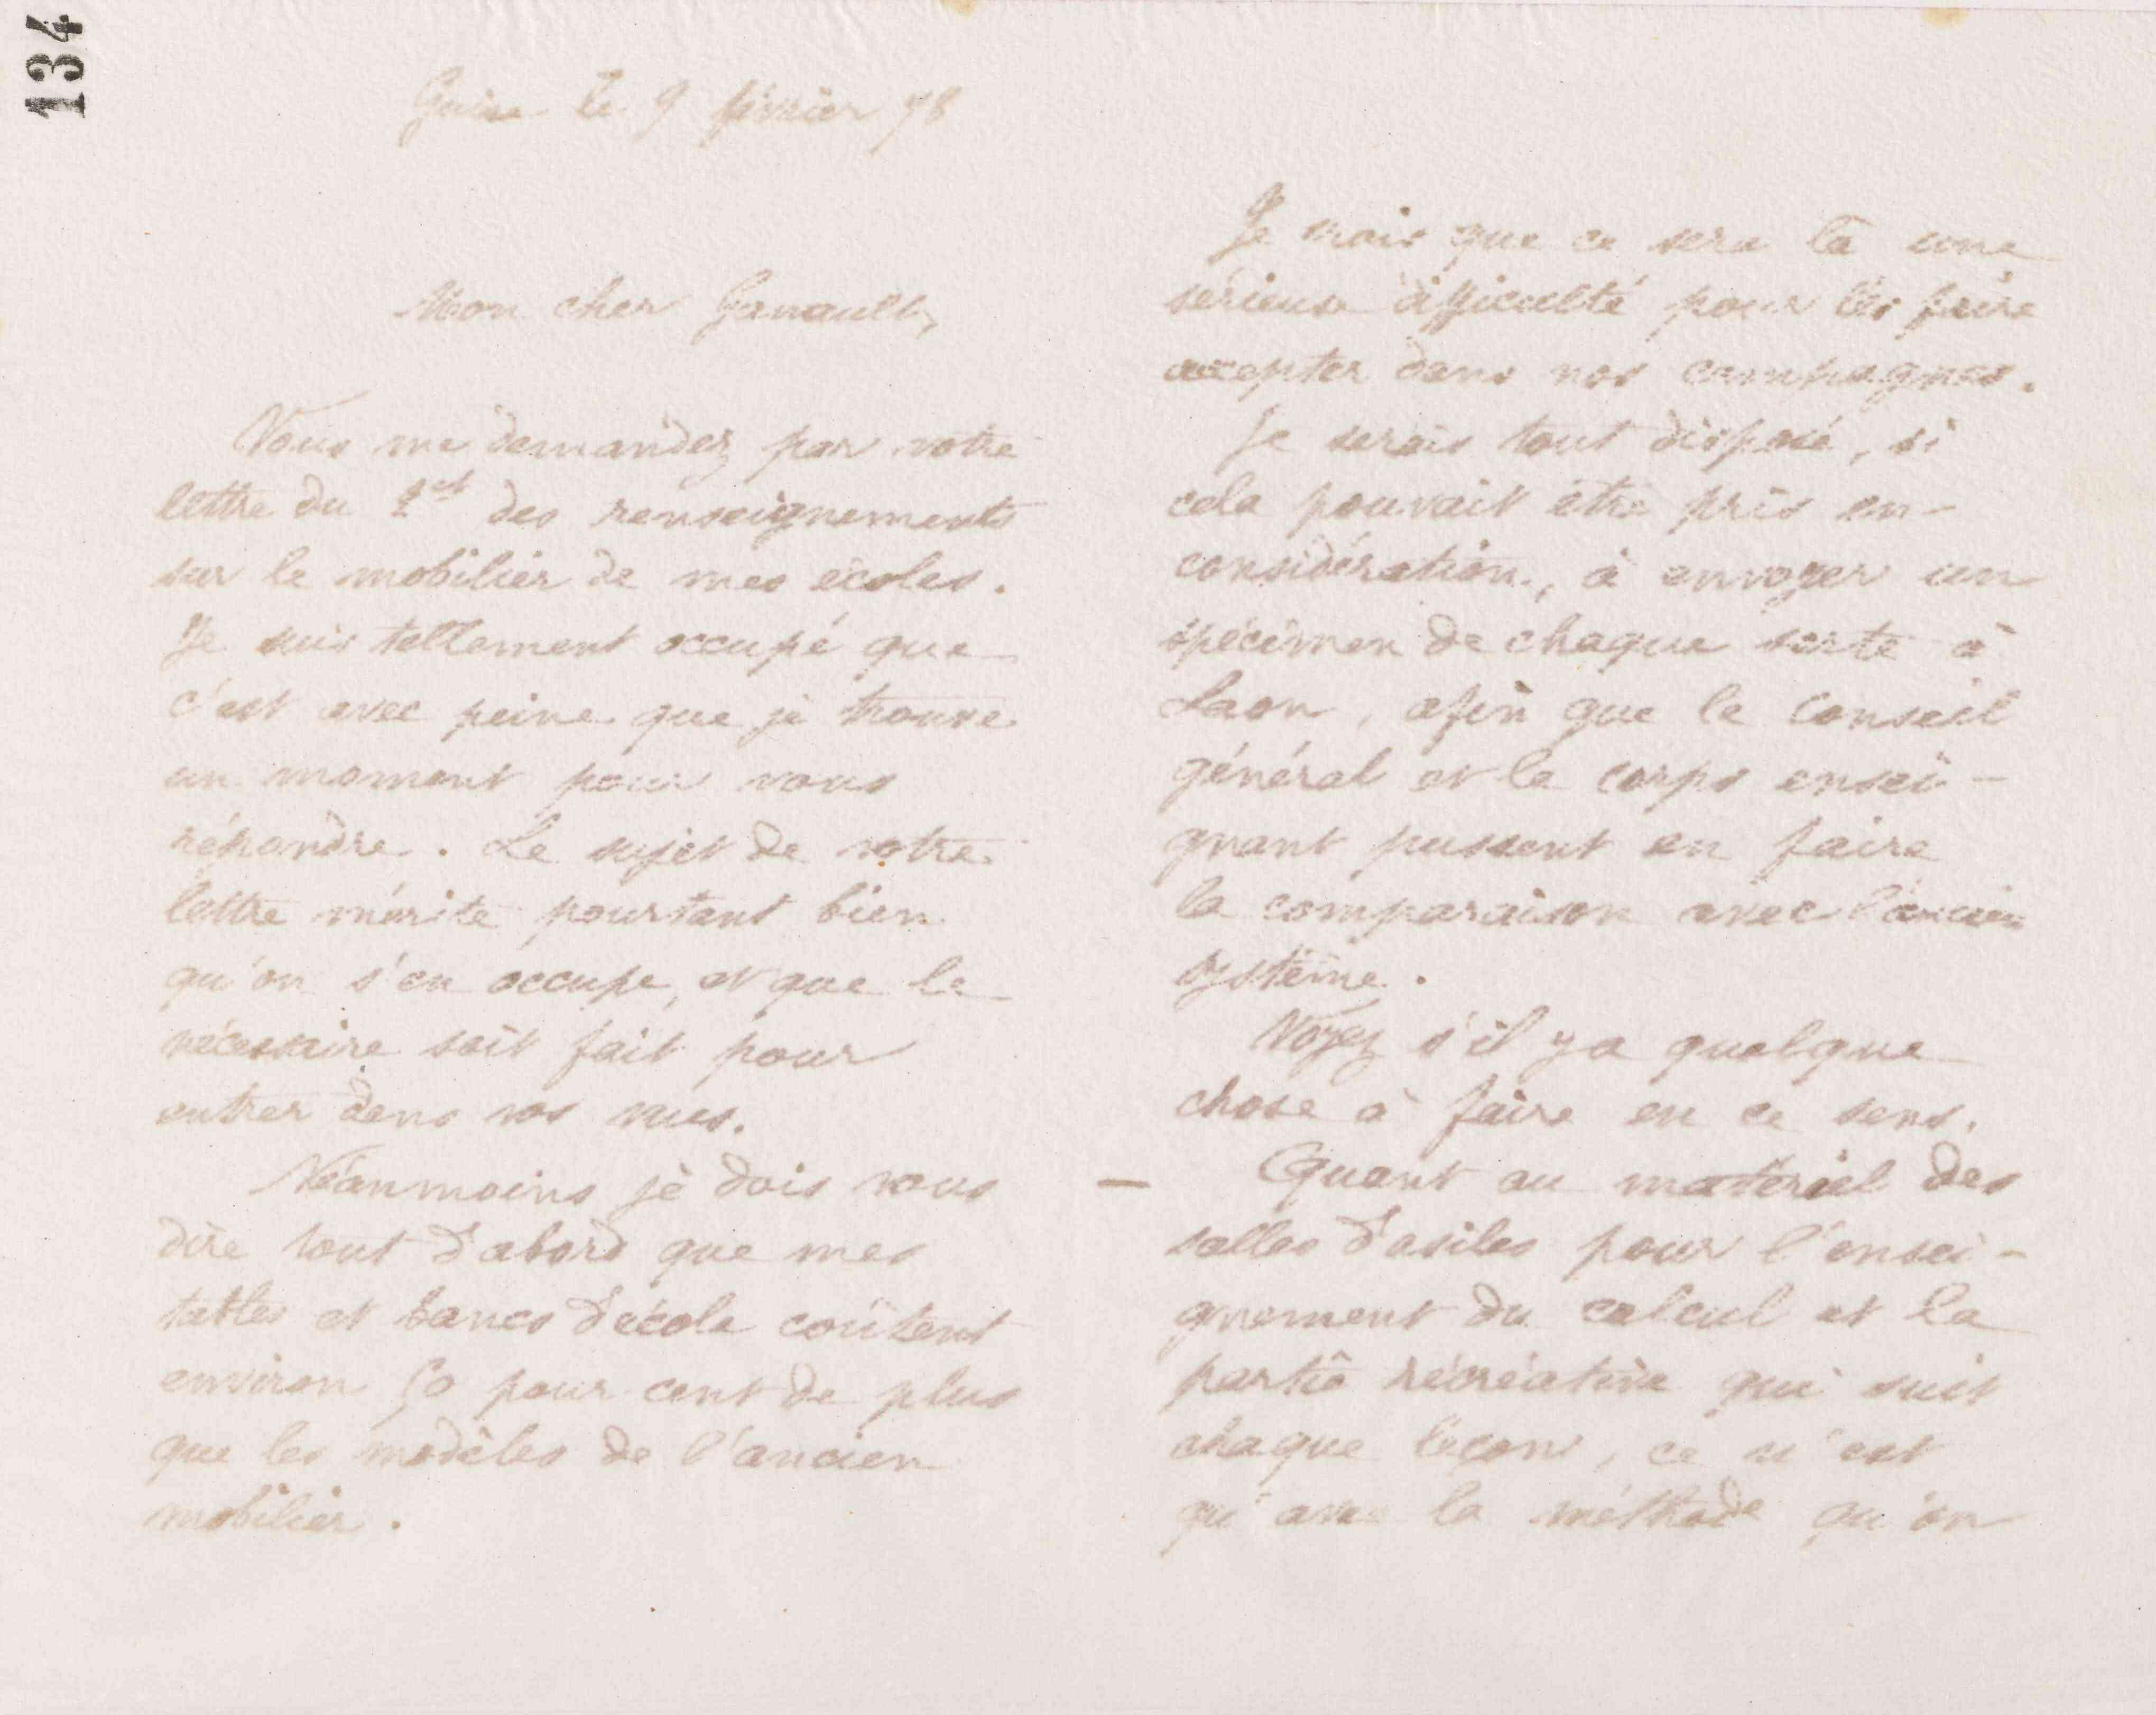 134
Guise le 9 février 78
Mon cher Ganault,
Vous me demandez par votre
lettre du 1er des renseignements
sur le mobilier de mes écoles.
Je suis tellement occupé que
c'est avec peine que je trouve
un moment pour vous
répondre. Le sujet de votre
lettre mérite pourtant bien
qu'on s'en occupe, et que le
nécessaire soit fait pour
entrer dans vos vues.
Néanmoins je dois vous
dire tout d'abord que mes
tables et bancs d'école coûtent
environ 50 pour cent de plus
que les modèles de l'ancien
mobilier.
Je crois que ce sera là une
sérieuse difficulté pour les faire
accepter dans nos campagnes.
Je serais tout disposé, si
cela pouvait être pris en
considération, à envoyer un
spécimen de chaque sorte à
Laon, afin que le Conseil
général et le corps ensei-
gnant pussent en faire
la comparaison avec l'ancien
système.
Voyez s'il y a quelque
chose à faire en ce sens.
— Quant au matériel des
salles d'asiles pour l'ensei-
gnement du calcul et la
partie récréative qui suit
chaque leçon, ce n'est
qu'avec la méthode qu'on